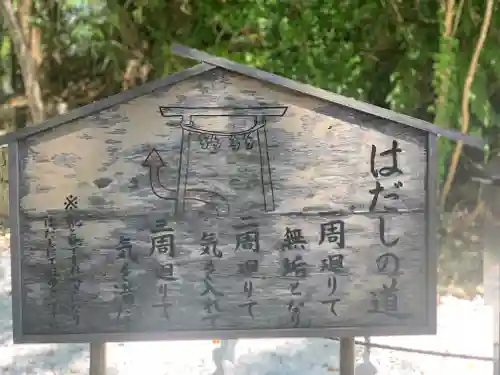 はだしの道
一周廻りて
無垢となり
二周廻りて
気を入れて
三周廻りて
気を満た